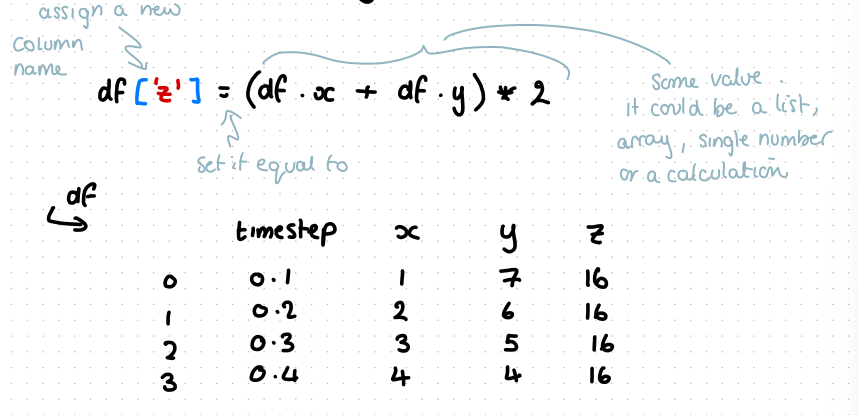 assign a new
column
name
df['z'] = (df.x + df.y) * 2
Some value.
it could be a list,
array, single number
or a calculation
set it equal to
df
timestep x y z
0 0.1 1 7 16
1 0.2 2 6 16
2 0.3 3 5 16
3 0.4 4 4 16